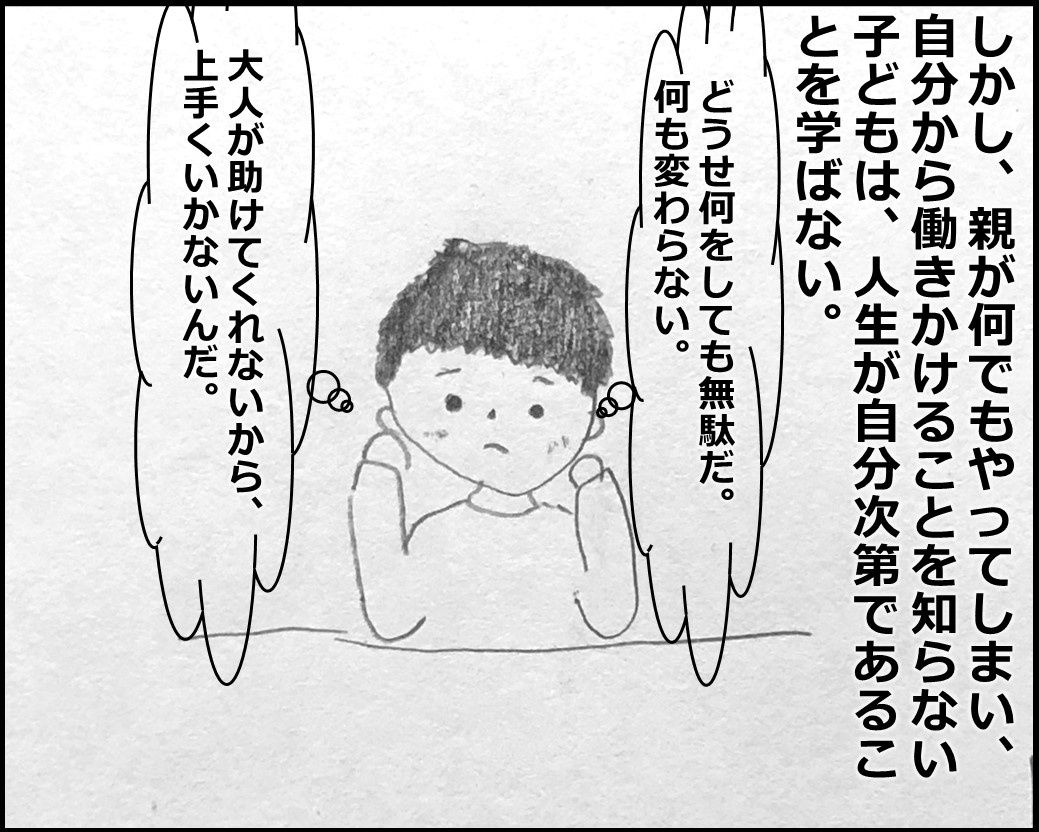 しかし、親が何でもやってしまい、
自分から働きかけることを知らない
子どもは、人生が自分次第であるこ
とを学ばない。
どうせ何をしても無駄だ。
何も変わらない。
大人が助けてくれないから、
上手くいかないんだ。